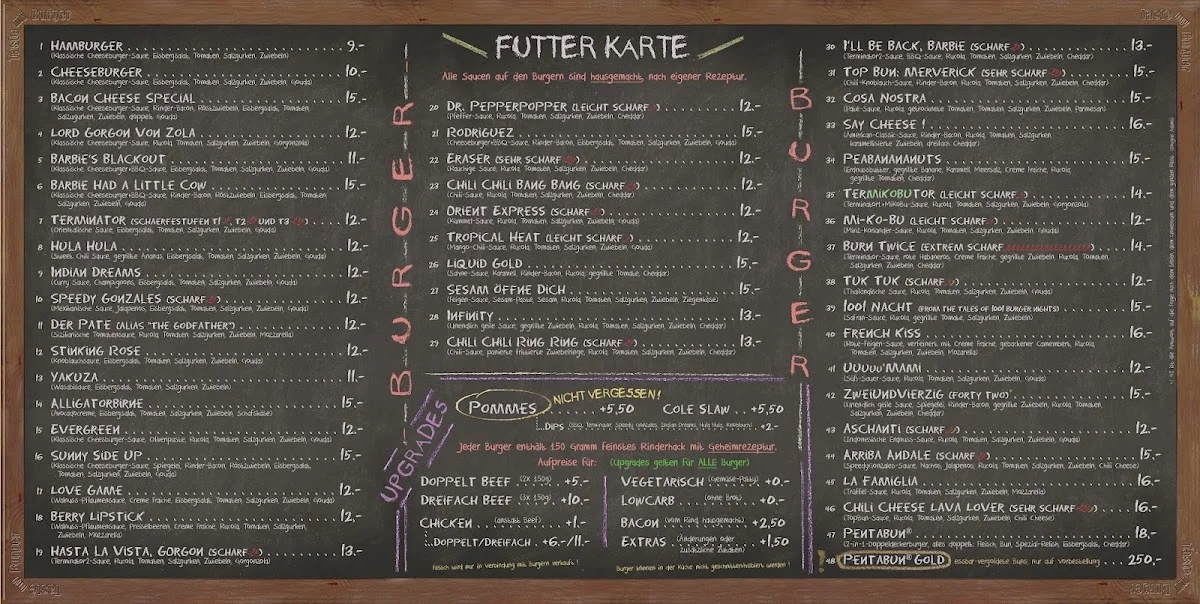 FUTTER KARTE
Alle Saucen auf den Burgern sind hausgemacht, nach eigener Rezeptur.
BURGER
1 HAMBURGER 9.-
(Klassische Cheeseburger-Sauce, Eisbergsalat, Tomaten, Salzgurken, Zwiebeln)
2 CHEESEBURGER 10.-
(Klassische Cheeseburger-Sauce, Eisbergsalat, Tomaten, Salzgurken, Zwiebeln, Gouda)
3 BACON CHEESE SPECIAL 15.-
(Klassische Cheeseburger-Sauce, Rinder-Bacon, Röstzwiebeln, Eisbergsalat, Tomaten,
Salzgurken, Zwiebeln, doppelt Gouda)
4 LORD GORGON VON ZOLA 12.-
(Klassische Cheeseburger-Sauce, Eisbergsalat, Tomaten, Salzgurken, Zwiebeln, Gorgonzola)
5 BARBIE'S BLACKOUT 11.-
(Klassische Cheeseburger+BBQ-Sauce, Eisbergsalat, Tomaten, Salzgurken, Zwiebeln, Gouda)
6 BARBIE HAD A LITTLE COW 15.-
(Klassische Cheeseburger+BBQ-Sauce, Rinder-Bacon, Röstzwiebeln, Eisbergsalat, Tomaten,
Salzgurken, Zwiebeln, Gouda)
7 TERMINATOR (SCHÄRFESTUFEN T1, T2 UND T3) 12.-
(Orientalische Sauce, Eisbergsalat, Tomaten, Salzgurken, Zwiebeln, Gouda)
8 HULA HULA 12.-
(Sweet Chili Sauce, gegrillte Ananas, Eisbergsalat, Tomaten, Salzgurken, Zwiebeln, Gouda)
9 INDIAN DREAMS 12.-
(Curry Sauce, Champignons, Eisbergsalat, Tomaten, Salzgurken, Zwiebeln, Gouda)
10 SPEEDY GONZALES (SCHARF) 12.-
(Mexikanische Sauce, Jalapenos, Eisbergsalat, Tomaten, Salzgurken, Zwiebeln, Gouda)
11 DER PATE (ALIAS "THE GODFATHER") 12.-
(Sizilianische Tomatensauce, Rucola, Tomaten, Salzgurken, Zwiebeln, Mozzarella)
12 STINKING ROSE 12.-
(Knoblauchsauce, Eisbergsalat, Tomaten, Salzgurken, Zwiebeln, Gouda)
13 YAKUZA 11.-
(Wasabisauce, Eisbergsalat, Tomaten, Salzgurken, Zwiebeln)
14 ALLIGATORBIRNE 15.-
(Avocadocreme, Eisbergsalat, Tomaten, Salzgurken, Zwiebeln, Schafskäse)
15 EVERGREEN 15.-
(Klassische Cheeseburger-Sauce, Olivenpaste, Rucola, Tomaten, Salzgurken, Zwiebeln, Gouda)
16 SUNNY SIDE UP 15.-
(Klassische Cheeseburger-Sauce, Spiegelei, Rinder-Bacon, Röstzwiebeln, Eisbergsalat,
Tomaten, Salzgurken, Zwiebeln, Gouda)
17 LOVE GAME 12.-
(Walnuss-Pflaumensauce, Creme Fraiche, Rucola, Eisbergsalat, Tomaten, Salzgurken, Zwiebeln, Gouda)
18 BERRY LIPSTICK 12.-
(Walnuss-Pflaumensauce, Preiselbeeren, Creme Fraiche, Rucola, Tomaten, Salzgurken,
Zwiebeln, Mozzarella)
19 HASTA LA VISTA, GORGON (SCHARF) 13.-
(Terminator2-Sauce, Rucola, Tomaten, Salzgurken, Zwiebeln, Gorgonzola)
20 DR. PEPPERPOPPER (LEICHT SCHARF) 12.-
(Pfeffer-Sauce, Rucola, Tomaten, Salzgurken, Zwiebeln, Cheddar)
21 RODRIGUEZ 15.-
(Cheeseburger+BBQ-Sauce, Rinder-Bacon, Rucola, Tomaten, Salzgurken, Zwiebeln, Cheddar)
22 ERASER (SEHR SCHARF) 12.-
(Erdnuss-Sauce, Rucola, Tomaten, Salzgurken, Zwiebeln, Cheddar)
23 CHILI CHILI BANG BANG (SCHARF) 12.-
(Chili-Sauce, Rucola, Tomaten, Salzgurken, Zwiebeln, Cheddar)
24 ORIENT EXPRESS (SCHARF) 12.-
(Kümmel-Sauce, Rucola, Tomaten, Salzgurken, Zwiebeln, Cheddar)
25 TROPICAL HEAT (LEICHT SCHARF) 12.-
(Mango-Chili-Sauce, Rucola, Tomaten, Salzgurken, Zwiebeln, Cheddar)
26 LIQUID GOLD 15.-
(Sahne-Sauce, Karamell, Rinder-Bacon, Rucola, gegrillte Tomaten, Cheddar)
27 SESAM ÖFFNE DICH 15.-
(Feigen-Sauce, Sesam-Paste, Sesam, Rucola, Tomaten, Salzgurken, Zwiebeln, Ziegenkäse)
28 INFINITY 13.-
(Unendlich geile Sauce, gegrillte Zwiebeln, Rucola, Tomaten, Salzgurken, Cheddar)
29 CHILI CHILI RING RING (SCHARF) 13.-
(Chili-Sauce, panierte frittierte Zwiebelringe, Rucola, Tomaten, Salzgurken, Zwiebeln, Cheddar)
UPGRADES
POMMES +5,50
NICHT VERGESSEN!
COLE SLAW +5,50
DIPS +2.-
Jeder Burger enthält 150 Gramm feinstes Rinderhack mit Geheimrezeptur.
Aufpreise für: (Upgrades gelten für ALLE Burger)
DOPPELT BEEF (2x 150g) +5.-
DREIFACH BEEF (3x 150g) +10.-
CHICKEN (anstatt Beef) +1.-
DOPPELT/DREIFACH +6.-/11.-
VEGETARISCH (Gemüse-Patty) +0.-
LOWCARB (ohne Brot) +0.-
BACON (vom Rind, hausgemacht) +2,50
EXTRAS (Änderungen oder
zusätzliche Zutaten) +1,50
Fleisch wird nur in Verbindung mit Burgern verkauft!
Burger können in der Küche nicht geschnitten/halbiert werden!
BURGER
30 I'LL BE BACK, BARBIE (SCHARF) 13.-
(Terminator2-Sauce, BBQ-Sauce, Rucola, Tomaten, Salzgurken, Zwiebeln, Gouda)
31 TOP BUN: MERVERICK (SEHR SCHARF) 15.-
(Chili-Knoblauch-Sauce, Rinder-Bacon, Rucola, Tomaten, Salzgurken, Zwiebeln, Gouda)
32 COSA NOSTRA 15.-
(Aioli-Sauce, Rucola, getrocknete Tomaten, Tomaten, Salzgurken, Zwiebeln, Parmesan)
33 SAY CHEESE! 16.-
(American-Classic-Sauce, Rinder-Bacon, Rucola, Tomaten, Salzgurken,
karamellisierte Zwiebeln, dreifach Cheddar)
34 PEABANANANUTS 15.-
(Erdnussbutter, gegrillte Banane, Karamell, Meersalz, Creme Fraiche, Rucola,
gegrillte Tomaten, Gouda)
35 TERMIKOBUTOR (LEICHT SCHARF) 14.-
(Terminator1+MiKoBu-Sauce, Rucola, Tomaten, Salzgurken, Zwiebeln, Gorgonzola)
36 MI-KO-BU (LEICHT SCHARF) 12.-
(Minz-Koriander-Sauce, Rucola, Tomaten, Salzgurken, Zwiebeln, Gouda)
37 BURN TWICE (EXTREM SCHARF) 14.-
(Terminator-Sauce, rote Habaneros, Creme Fraiche, gegrillte Rucola, Tomaten, Salzgurken, Zwiebeln, Gouda)
38 TUK TUK (SCHARF) 12.-
(Thailändische Sauce, Rucola, Tomaten, Salzgurken, Zwiebeln, Gouda)
39 1001 NACHT (FROM THE TALES OF 1001 BURGER NIGHTS) 15.-
(Safran-Sauce, Rucola, gegrillte Tomate, Salzgurken, Zwiebeln)
40 FRENCH KISS 16.-
(Rote-Feigen-Sauce, verfeinert mit Creme Fraiche, gebackener Camembert, Rucola,
Tomaten, Salzgurken, Zwiebeln, Mozzarella)
41 UUUUU'MAMI 12.-
(Süß-Sauer-Sauce, Rucola, Tomaten, Salzgurken, Zwiebeln, Gouda)
42 ZWEIUNDVIERZIG (FORTY TWO) 15.-
(Unendlich geile Sauce, Spiegelei, Rinder-Bacon, gegrillte Zwiebeln, Rucola, Tomaten,
Salzgurken, Cheddar)
43 ASCHANTI (SCHARF) 12.-
(Indonesische Erdnuss-Sauce, Rucola, Tomaten, Salzgurken, Zwiebeln, Gouda)
44 ARRIBA ANDALE (SCHARF) 15.-
(SpeedyGonzales-Sauce, Nachos, Jalapenos, Rucola, Tomaten, Salzgurken, Zwiebeln, Chili Cheese)
45 LA FAMIGLIA 16.-
(Trüffel-Sauce, Rucola, Tomaten, Salzgurken, Zwiebeln, Mozzarella)
46 CHILI CHEESE LAVA LOVER (SEHR SCHARF) 16.-
(TopBun-Sauce, Rucola, Tomaten, Salzgurken, Zwiebeln, Chili Cheese)
47 PENTABUN® 18.-
(2-in-1-Doppeldeckerburger, alles doppelt: Fleisch, Bun, Spezial-Relish, Eisbergsalat, Cheddar)
! 48 PENTABUN® GOLD essbar-vergoldete Buns, nur auf Vorbestellung 250,-